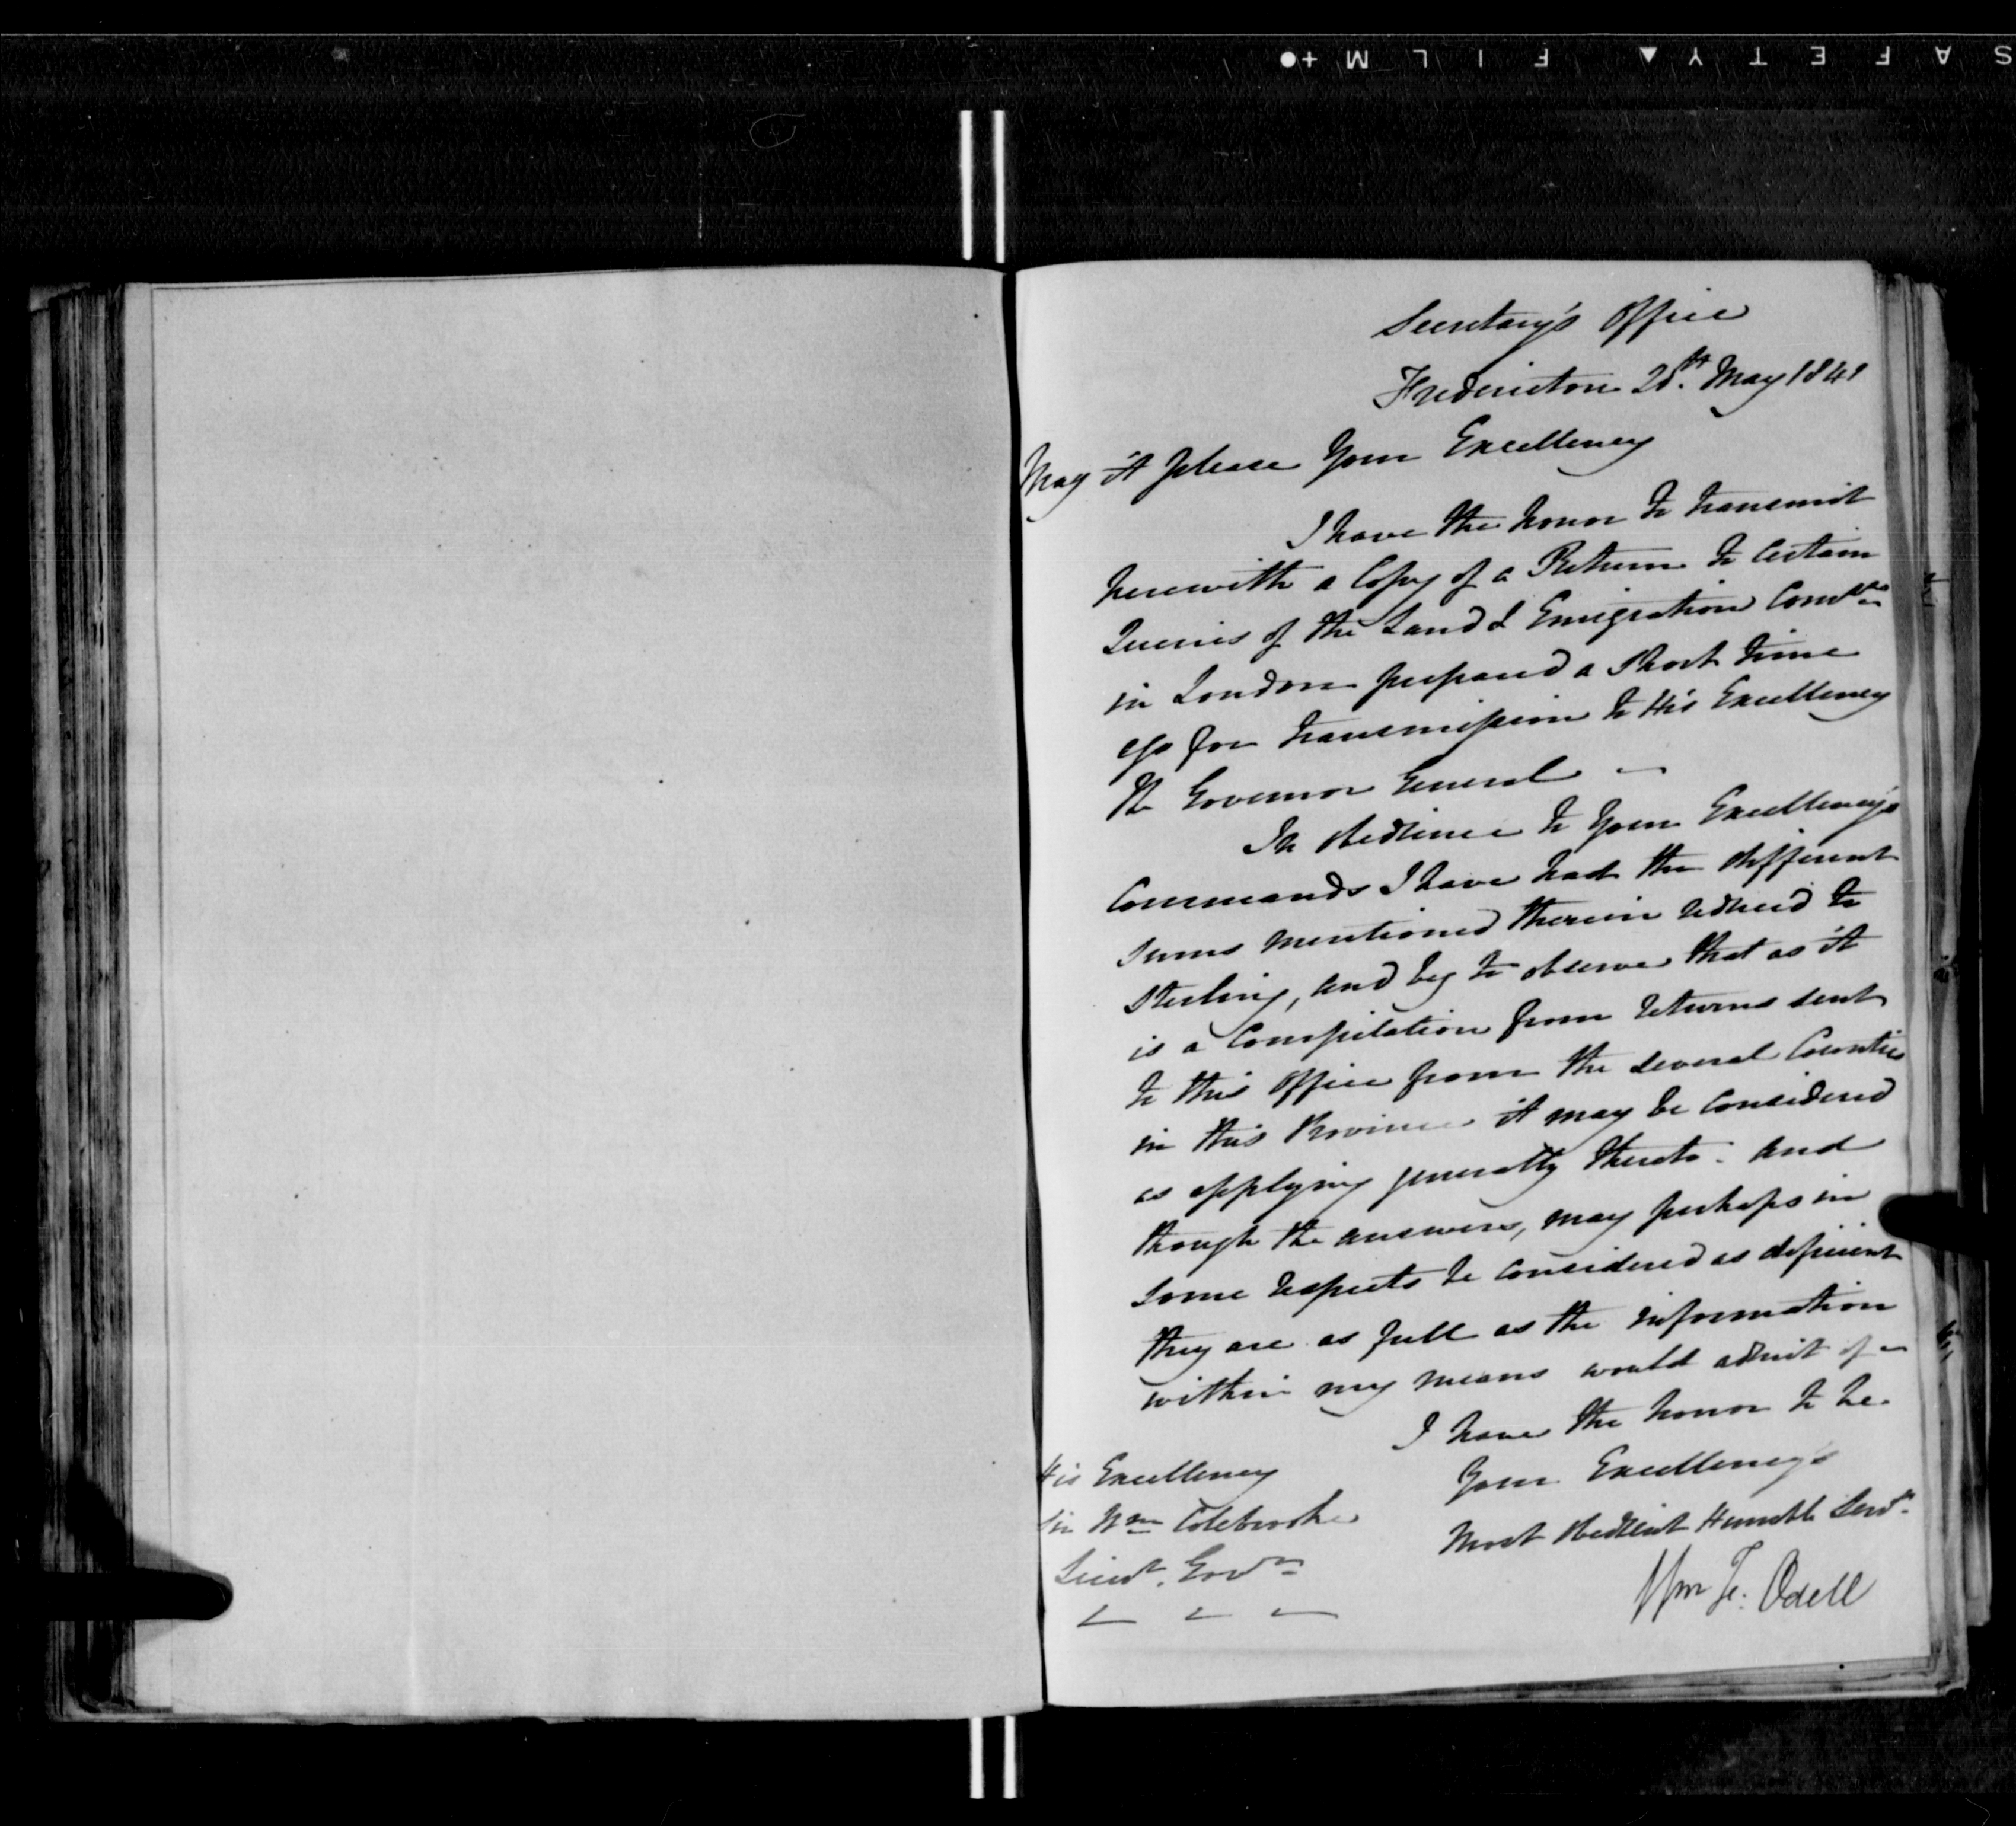 SAFETY FILM
Secretary's Office
Fredericton 28th May 1841
May it please Your Excellency
I have the honor to transmit
herewith a Copy of a Return to Certain
Queries of the Land & Emigration Comrs
in London prepared a short time
ago for transmission to His Excellency
the Governor General
In obedience to Your Excellency's
Commands I have had the different
sums mentioned therein reduced to
Sterling, and beg to observe that as it
is a Compilation from returns sent
to this Office from the several Counties
in this Province it may be considered
as applying generally thereto. and
though the answers, may perhaps in
some respects be considered as deficient
they are as full as the information
within my means would admit of
I have the honor to be.
Your Excellency's
Most Obedient Humble Servt.
Wm F. Odell
His Excellency
Sir Wm Colebrooke
Lieut. Govr